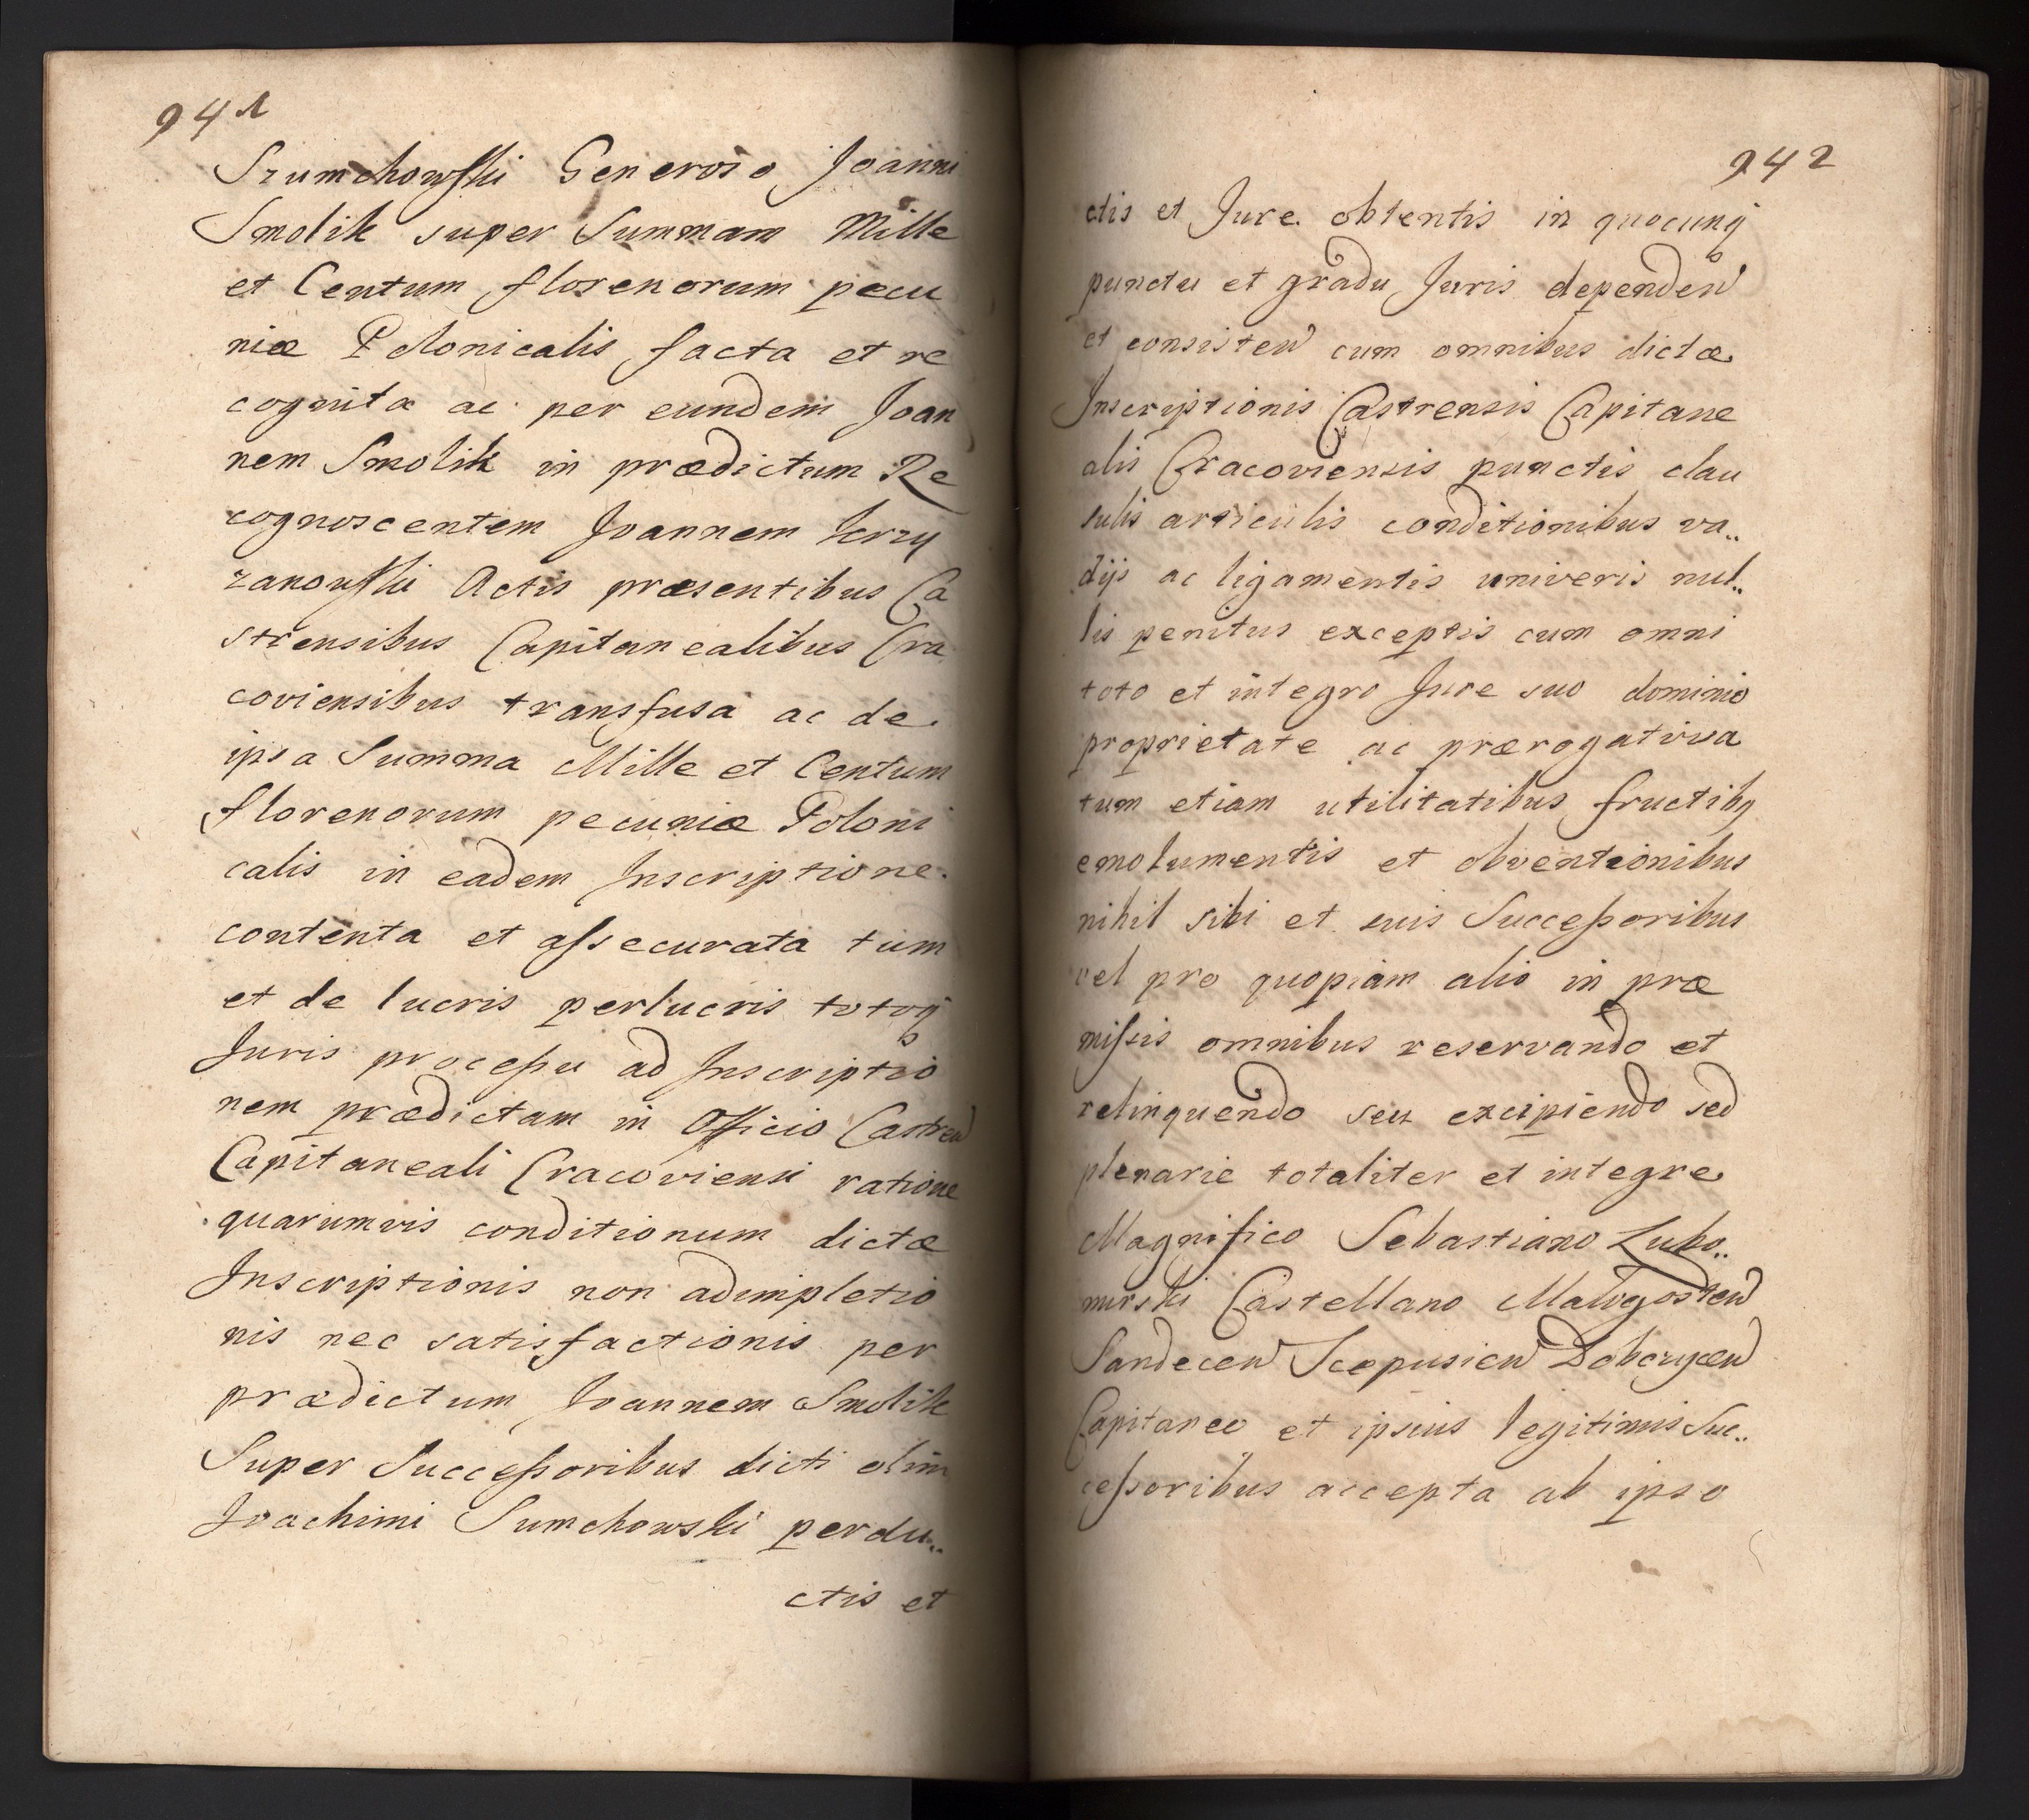 941
Szumchowski Generoso Joanni
Smolik super Summam Mille
et Centum florenorum pecu
niæ Polonicalis facta et re
cognita ac per eundem Joan
nem Smolik in prædictum Re
cognoscentem Joannem Krzy
zanowski Actis præsentibus Ca
strensibus Capitanealibus Cra
coviensibus transfusa ac de
ipsa Summa Mille et Centum
florenorum pecuniæ Poloni
calis in eadem Inscriptione
contenta et assecurata tum
et de lucris perlucris totoq
Juris processu ad Inscriptio
nem prædictam in Officio Castren
Capitaneali Cracoviensi ratione
quarumvis conditionum dictæ
Inscriptionis non adimpletio
nis nec satisfactionis per
prædictum Joannem Smolik
Super Successoribus dicti olim
Joachimi Sumchowski perdu..
ctis et
942
ctis et Jure obtentis in quocunq
punctu et gradu Juris dependen
et consisten cum omnibus dictæ
Inscriptionis Castrensis Capitane
alis Cracoviensis punctis clau
sulis articulis conditionibus va..
dijs ac ligamentis univeris nul..
lis penitus exceptis cum omni
toto et integro Jure suo dominio
proprietate ac prærogativa
tum etiam utilitatibus fructibq
emolumentis et obventionibus
nihil sibi et suis Successoribus
vel pro quopiam alio in præ
missis omnibus reservando et
relinquendo seu excipiendo sed
plenarie totaliter et integre
Magnifico Sebastiano Lubo..
mirski Castellano Malogosten
Sandecen Scepusien Dobczycen
Capitaneo et ipsius legitimis Suc..
cessoribus accepta ab ipso